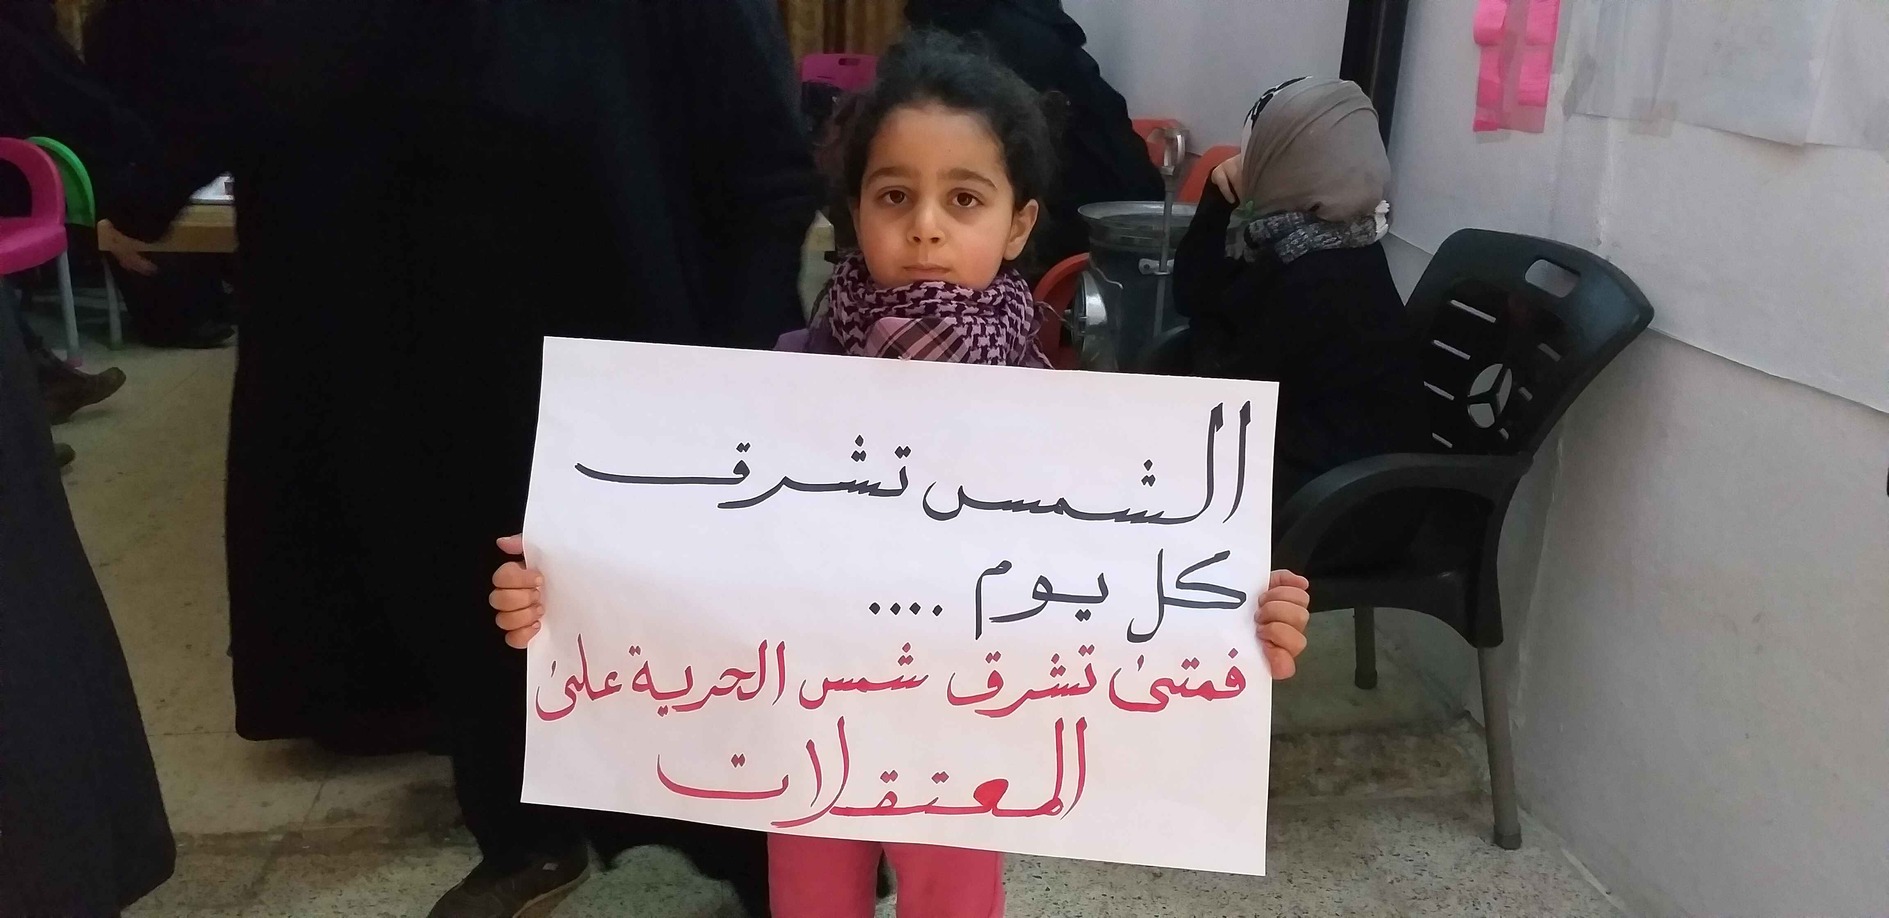 الشمس تشرق
كل يوم ....
فمتى تشرق شمس الحرية على
المعتقلات